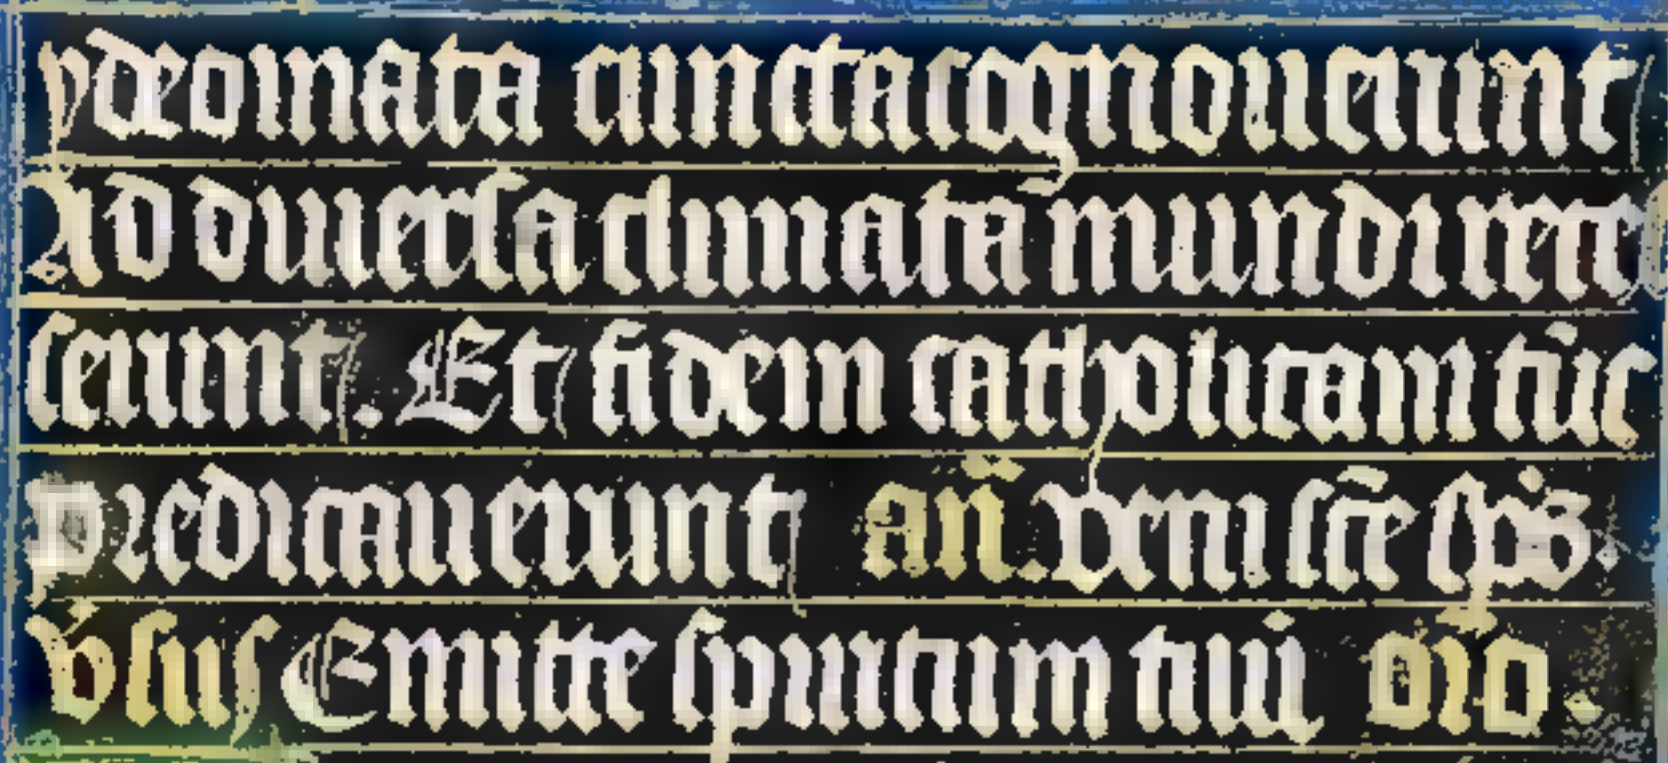 ydeomata cuncta cognoueruut
Ad diuersa climata mundi rece
serunt. Et fidem catholicam tūc
predicauerunt an̄. veni sc̄e sp̄s.
v̓sus Emitte spiritum tuū oro̅.